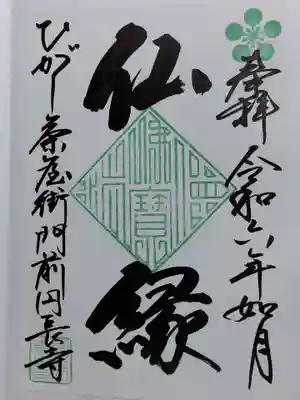 奉拝
令和六年如月
仏縁
ひがし茶屋街門前円長寺